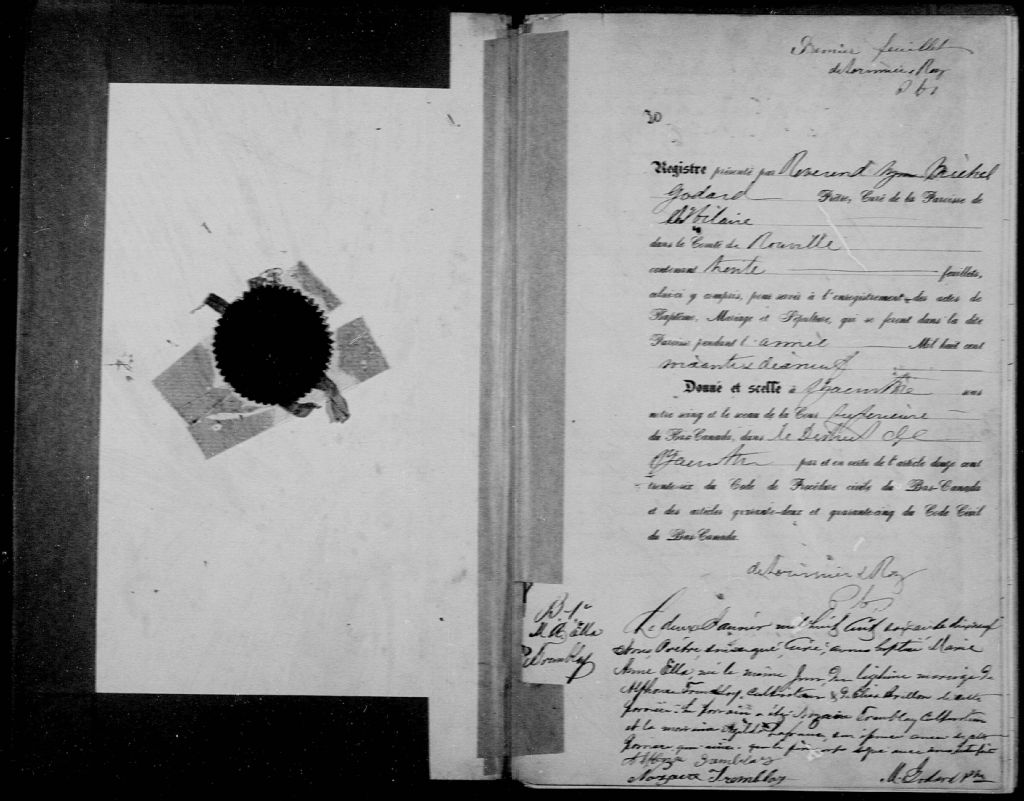 Premier feuillet
deTonnancour & Roy
Registre présenté par Reverend Mr Michel
Godard Prêtre, Curé de la Paroisse de
St Hilaire
dans le Comté de Rouville
contenant trente feuillets,
celui-ci y compris, pour servir à l'enregistrement des actes de
Baptême, Mariage et Sépulture, qui se feront dans la dite
Paroisse pendant l'année Mil huit cent
soixante & dixneuf
Donné et scellé à St Hyacinthe sous
notre seing et le sceau de la Cour Supérieure
du Bas-Canada, dans le District de St
Hyacinthe par et en vertu de l'article douze cent
trente-six du Code de Procédure civile du Bas-Canada
et des articles quarante-deux et quarante-cinq du Code Civil
du Bas-Canada.
B. 1e
M. A. Ella
Tremblay
Le deux Janvier mil huit cent soixante dixneuf
Nous Prêtre soussigné, Curé, avons baptisé Marie
Anne Ella née le même jour du légitime mariage de
Alphonse Tremblay, Cultivateur & de
paroisse. Le parrain a été Nazaire Tremblay Cultivateur
et la marraine
Alphonse Tremblay
Nazaire Tremblay M. Godard Ptre